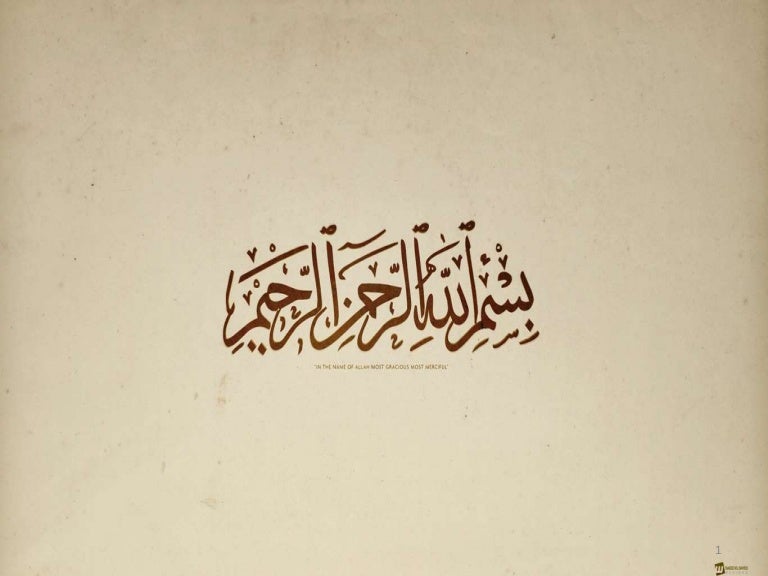 بِسْمِ ٱللَّهِ ٱلرَّحْمَٰنِ ٱلرَّحِيمِ
"IN THE NAME OF ALLAH MOST GRACIOUS MOST MERCIFUL"
1